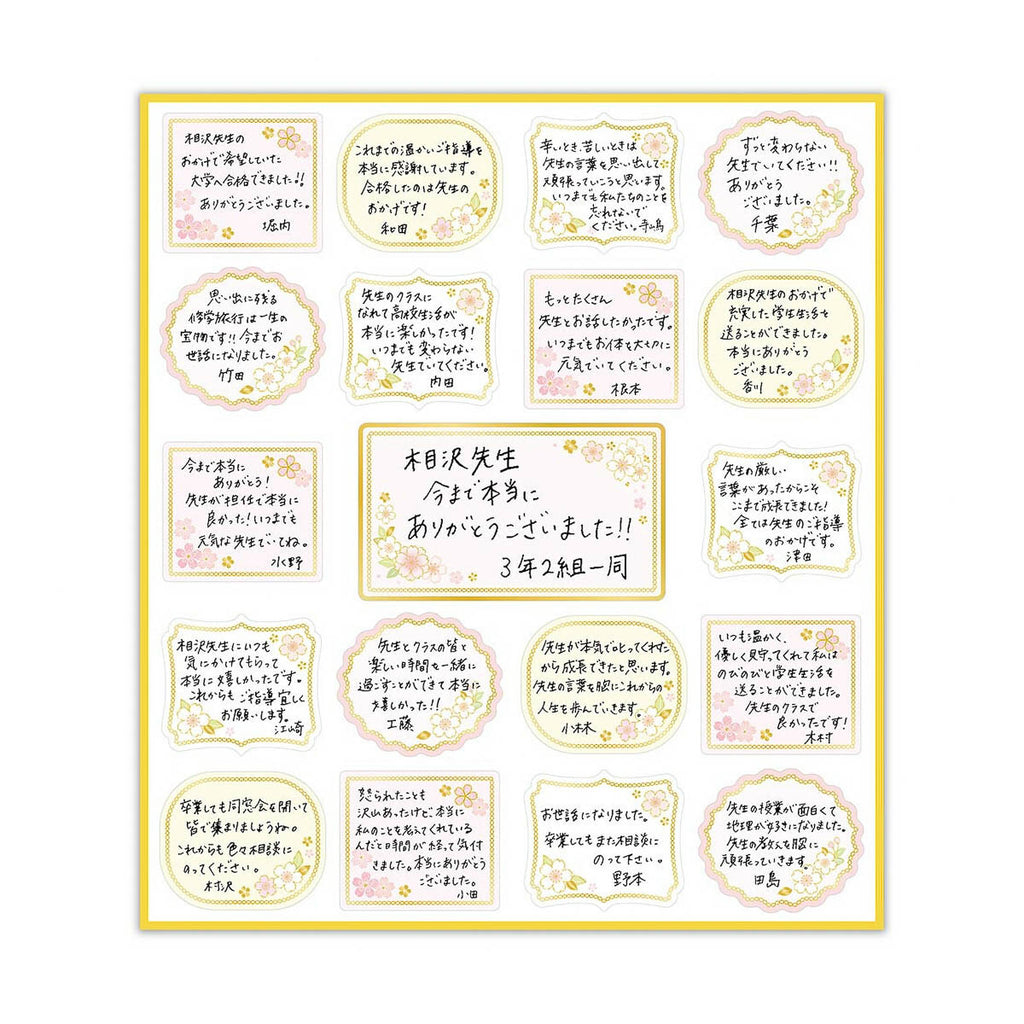 相沢先生の
おかげで希望していた
大学へ合格できました!!
ありがとうございました。
堀内
これまでの温かいご指導を
本当に感謝しています。
合格したのは先生の
おかげです!
和田
辛いとき、苦しいときは
先生の言葉を思い出して
頑張っていこうと思います。
いつまでも私たちのことを
忘れないで
ください。寺嶋
ずっと変わらない
先生でいてください!!
ありがとう
ございました。
千葉
思い出に残る
修学旅行は一生の
宝物です!!今までお
世話になりました。
竹田
先生のクラスに
なれて高校生活が
本当に楽しかったです!
いつまでも変わらない
先生でいてください。
内田
もっとたくさん
先生とお話したかったです。
いつまでもお体を大切に
元気でいてください。
根本
相沢先生のおかげで
充実した学生生活を
送ることができました。
本当にありがとう
ございました。
香川
今まで本当に
ありがとう!
先生が担任で本当に
良かった!いつまでも
元気な先生でいてね。
水野
相沢先生
今まで本当に
ありがとうございました!!
3年2組一同
先生の厳しい
言葉があったからこそ
ここまで成長できました!
全ては先生のご指導
のおかげです。
津田
相沢先生にいつも
気にかけてもらって
本当に嬉しかったです。
これからもご指導宜しく
お願いします。
江崎
先生とクラスの皆と
楽しい時間を一緒に
過ごすことができて本当に
嬉しかった!!
工藤
先生が本気で叱ってくれた
から成長できたと思います。
先生の言葉を胸にこれからの
人生を歩んでいきます。
小林
いつも温かく、
優しく見守ってくれて私は
のびのびと学生生活を
送ることができました。
先生のクラスで
良かったです!
木村
卒業しても同窓会を開いて
皆で集まりましょうね。
これからも色々相談に
のってください。
村沢
怒られたことも
沢山あったけど、本当に
私のことを考えてくれている
んだと時間が経って気付
きました。本当にありがとう
ございました。
小田
お世話になりました。
卒業してもまた相談に
のって下さい。
野本
先生の授業が面白くて
地理が好きになりました。
先生の教えを胸に
頑張っていきます。
田島